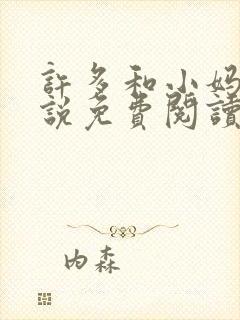 許多和小妈
說免費閱讀
内森